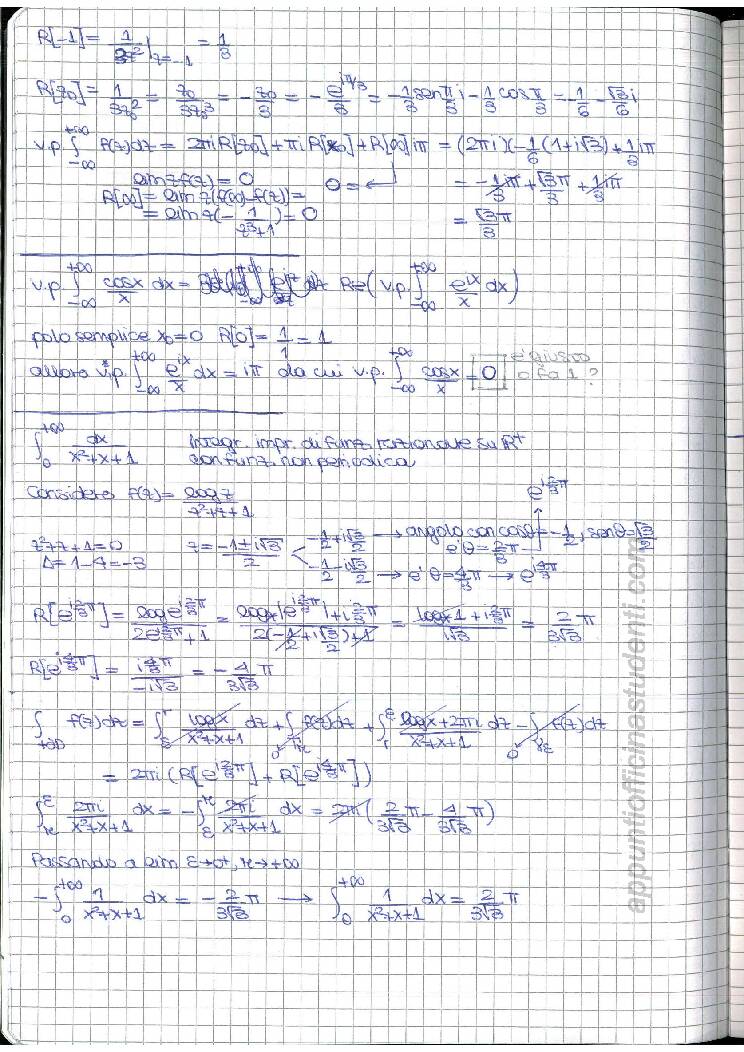 R[-1] = 1/3z² |z=-1 = 1/3
R[z₀] = 1/3z₀² = z₀/3z₀³ = -z₀/3 = -e^{iπ/3}/3 = -1/3 sen π/3 i - 1/3 cos π/3 = -1/6 - √3/6 i
v.p. ∫_{-∞}^{+∞} f(z)dz = 2πi R[z₀] + πi R[z₀] + R[∞]iπ = (2πi)(-1/6(1+i√3)) + 1/3 iπ
lim z f(z) = 0 0 = ← = -1/3 iπ + √3/3 π + 1/3 iπ
R[∞] = lim z(f(∞) - f(z)) =
= lim z(-1/(z³+1)) = 0 = √3/3 π
v.p. ∫_{-∞}^{+∞} cosx/x dx = Re(v.p. ∫_{-∞}^{+∞} e^{ix}/x dx)
polo semplice x₀=0 R[0] = 1/1 = 1
allora v.p. ∫_{-∞}^{+∞} e^{ix}/x dx = iπ da cui v.p. ∫_{-∞}^{+∞} cosx/x = 0 è giusto
o fa 1?
∫_0^{+∞} dx/(x²+x+1) integr. impr. di funz. razionale su R⁺
con funz. non periodica
Considero f(z) = log z/(z²+z+1) e^{i2/3π}
z²+z+1=0 z = (-1±i√3)/2 < -1/2+i√3/2 → angolo con cosθ=-1/2, senθ=√3/2
è θ=2/3π
Δ=1-4=-3 -1/2-i√3/2 → è θ=4/3π → e^{i4/3π}
R[e^{i2/3π}] = log e^{i2/3π}/(2e^{i2/3π}+1) = (log|e^{i2/3π}|+i2/3π)/(2(-1/2+i√3/2)+1) = (log 1+i2/3π)/(i√3) = 2/(3√3) π
R[e^{i4/3π}] = (i4/3π)/(-i√3) = -4/(3√3) π
∫_{+∂D} f(z)dz = ∫_ε^r logx/(x²+x+1) dz + ∫_{γr} f(z)dz + ∫_r^ε (logx+2πi)/(x²+x+1) dz - ∫_{γε} f(z)dz
= 2πi (R[e^{i2/3π}] + R[e^{i4/3π}])
∫_r^ε 2πi/(x²+x+1) dx = -∫_ε^r 2πi/(x²+x+1) dx = 2πi (2/(3√3) π - 4/(3√3) π)
Passando a lim ε→0⁺, r→+∞
-∫_0^{+∞} 1/(x²+x+1) dx = -2/(3√3) π → ∫_0^{+∞} 1/(x²+x+1) dx = 2/(3√3) π
appuntiofficinastudenti.com